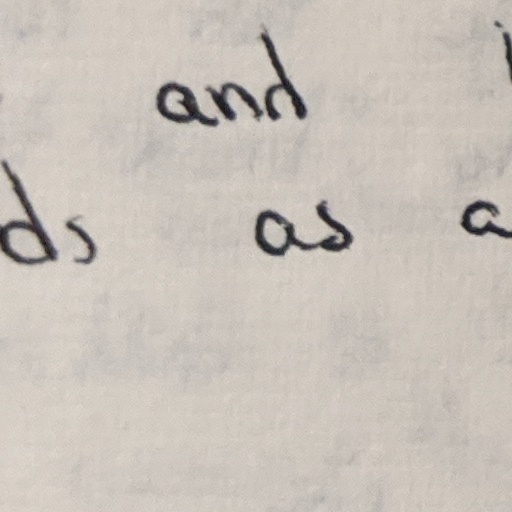 and
ds as a